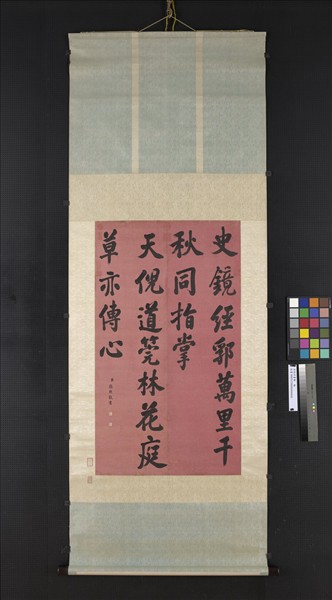 史鏡經郛萬里千
秋同指掌
天倪道筦林花庭
草亦傳心